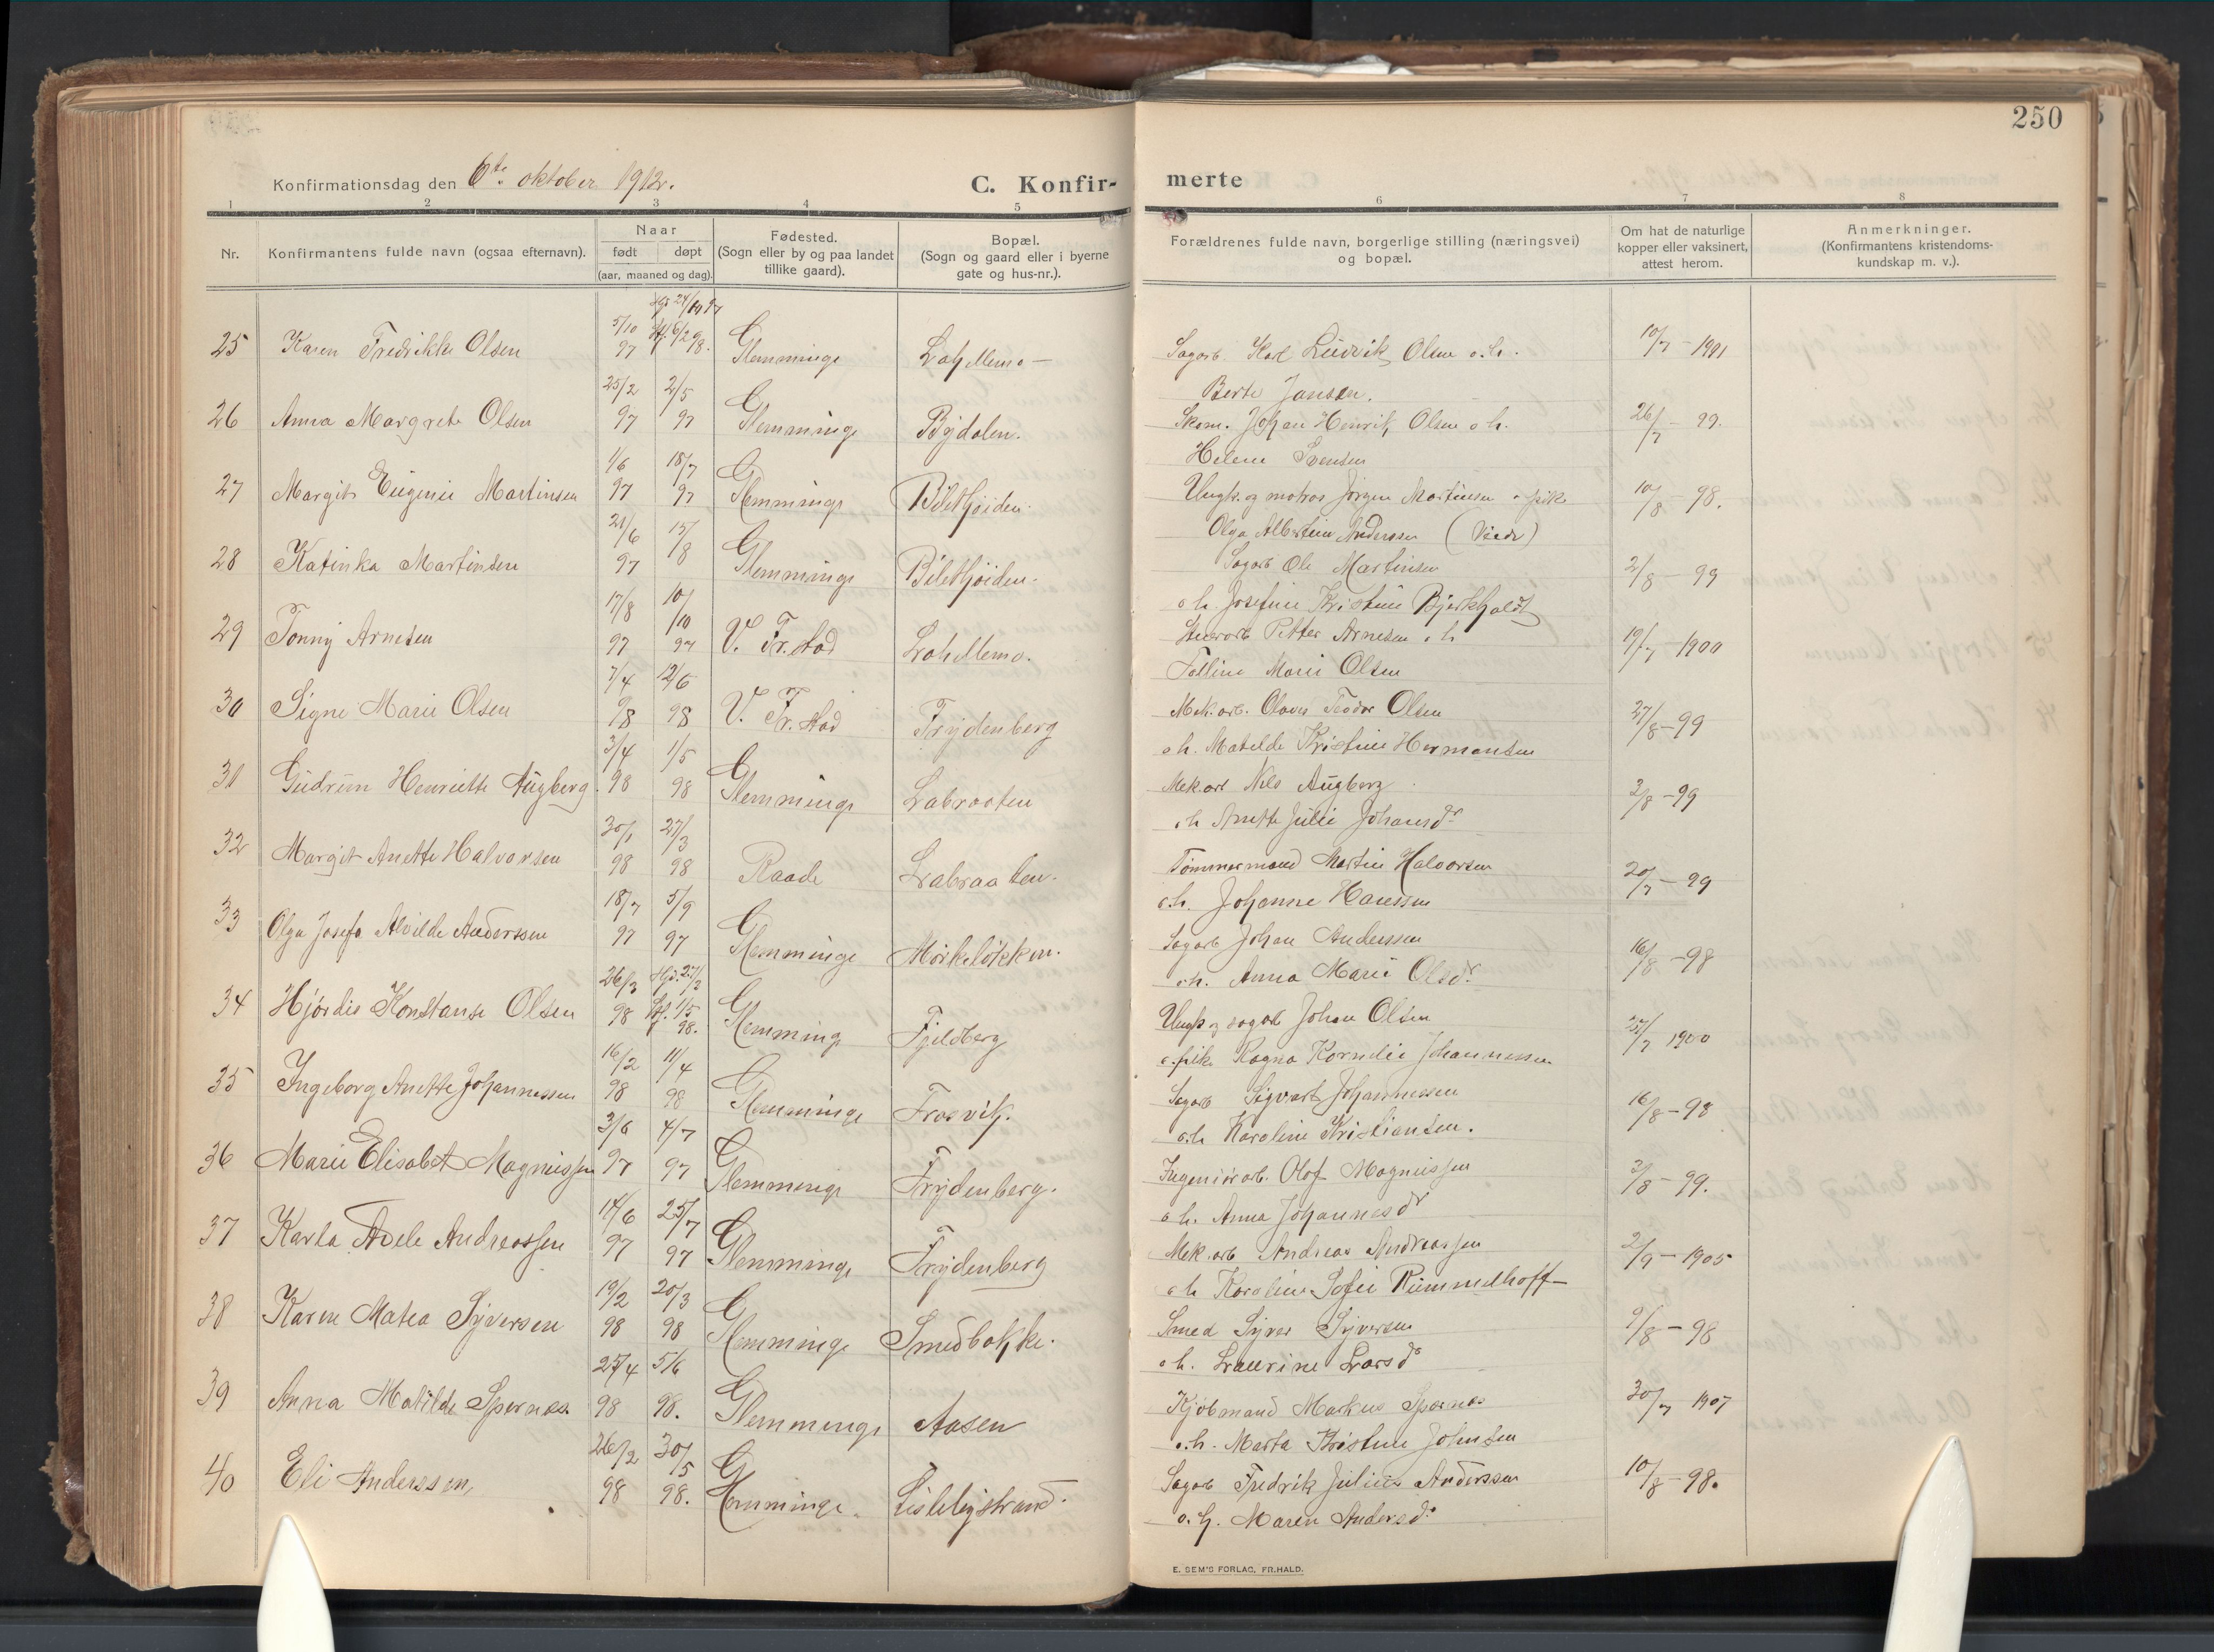 250
Konfirmationsdag den 6te oktober 1912.
C. Konfir-
merte
1 2 3 4 5 6 7 8
Nr.
Konfirmantens fulde navn (ogsaa efternavn).
Naar
født døpt
(aar, maaned og dag).
Fødested.
(Sogn eller by og paa landet
tillike gaard).
Bopæl.
(Sogn og gaard eller i byerne
gate og hus-nr.).
Forældrenes fulde navn, borgerlige stilling (næringsvei)
og bopæl.
Om hat de naturlige
kopper eller vaksinert,
attest herom.
Anmerkninger.
(Konfirmantens kristendoms-
kundskap m. v.).
25 Karen Fredrikke Olsen 5/10 97 Hj. 24/10 97 6/2 98. Glemminge Lahellemo - Sagarb. Karl Ludvik Olsen o.h. 10/7 - 1901
Berte Jansen.
26 Anna Margrete Olsen 25/2 97 2/5 97 Glemminge Bydalen. Skom. Johan Henrik Olsen o h. 26/7 - 99.
Helene Svensen
27 Margit Eugenie Martinsen 1/6 97 18/7 97 Glemminge Bilethøiden. Ungk. og matros Jørgen Martinsen o pik 10/8 - 98.
Olga Albertine Anderssen
28 Katinka Martinsen 21/6 97 15/8 Glemminge Bilethøiden. Sagarb Ole Martinsen 2/8 - 99
o h. Josefine Kristine Bjerkholdt
29 Tonny Arnesen 17/8 97 10/10 97 V. Fr.stad Lahellemo. Stenarb Petter Arnesen o h 19/7 - 1900
Talline Marie Olsen
30 Signe Marie Olsen 7/4 98 12/6 98 V. Fr.stad Frydenberg Mek.arb. Olaves Teodor Olsen 27/8 - 99
o h. Matelde Kristine Hermansen
31 Gudrun Henriette Augberg. 3/4 98 1/5 98 Glemminge Labraaten Mek.arb Nils Augberg 2/8 - 99
o h Anette Julie Johansdr
32 Margit Anette Halvorsen 30/1 98 27/3 98 Raade Labraaten. Tømmermand Martin Halvorsen 20/7 - 99
o.h. Johanne Hanssen
33 Olga Josefa Alvilde Anderssen 18/7 97 5/9 97 Glemminge Mørkeløkken. Sagarb Johan Anderssen 16/8 - 98
o.h. Anna Marie Olsdr.
34 Hjørdis Konstanse Olsen 26/3 98 Hjd. 27/3 1/5 98. Glemminge Fjeldberg Ungk og sagarb Johan Olsen 1900
o. pike Ragna Kornelie Johannessen
35 Ingeborg Anette Johannessen 16/2 98 11/4 98 Glemminge Trosvik. Sagarb Sigvart Johannessen 16/8 - 98
o.h Karoline Kristiansen.
36 Marie Elisabet Magnussen 3/6 97 4/7 97 Glemminge Frydenberg. Ingeniørarb. Olof Magnussen 2/8 - 99.
o h. Anna Johannesdr
37 Karla Adele Andreassen 14/6 97 25/7 97 Glemminge Frydenberg Mek.arb Andreas Andreassen 2/9 - 1905
o h Karoline Sofie Rummelhoff
38 Karen Matea Syversen 19/2 98 20/3 98 Glemminge Smedbakke. Smed Syver Syversen 9/8 - 98
o h. Laurine Larsd
39 Anna Matilde Spernes 25/4 98 5/6 98. Glemminge Aasen Kjøbmand Markus Spernes 30/7 1907
o.h. Marta Kristine Johnsen
40 Eli Anderssen 26/2 98 30/5 98. Glemminge. Lislebystrand. Sagarb Fredrik Julius Anderssen 10/8 - 98.
o. h. Maren Andersd.
E. SEM'S FORLAG, FR.HALD.